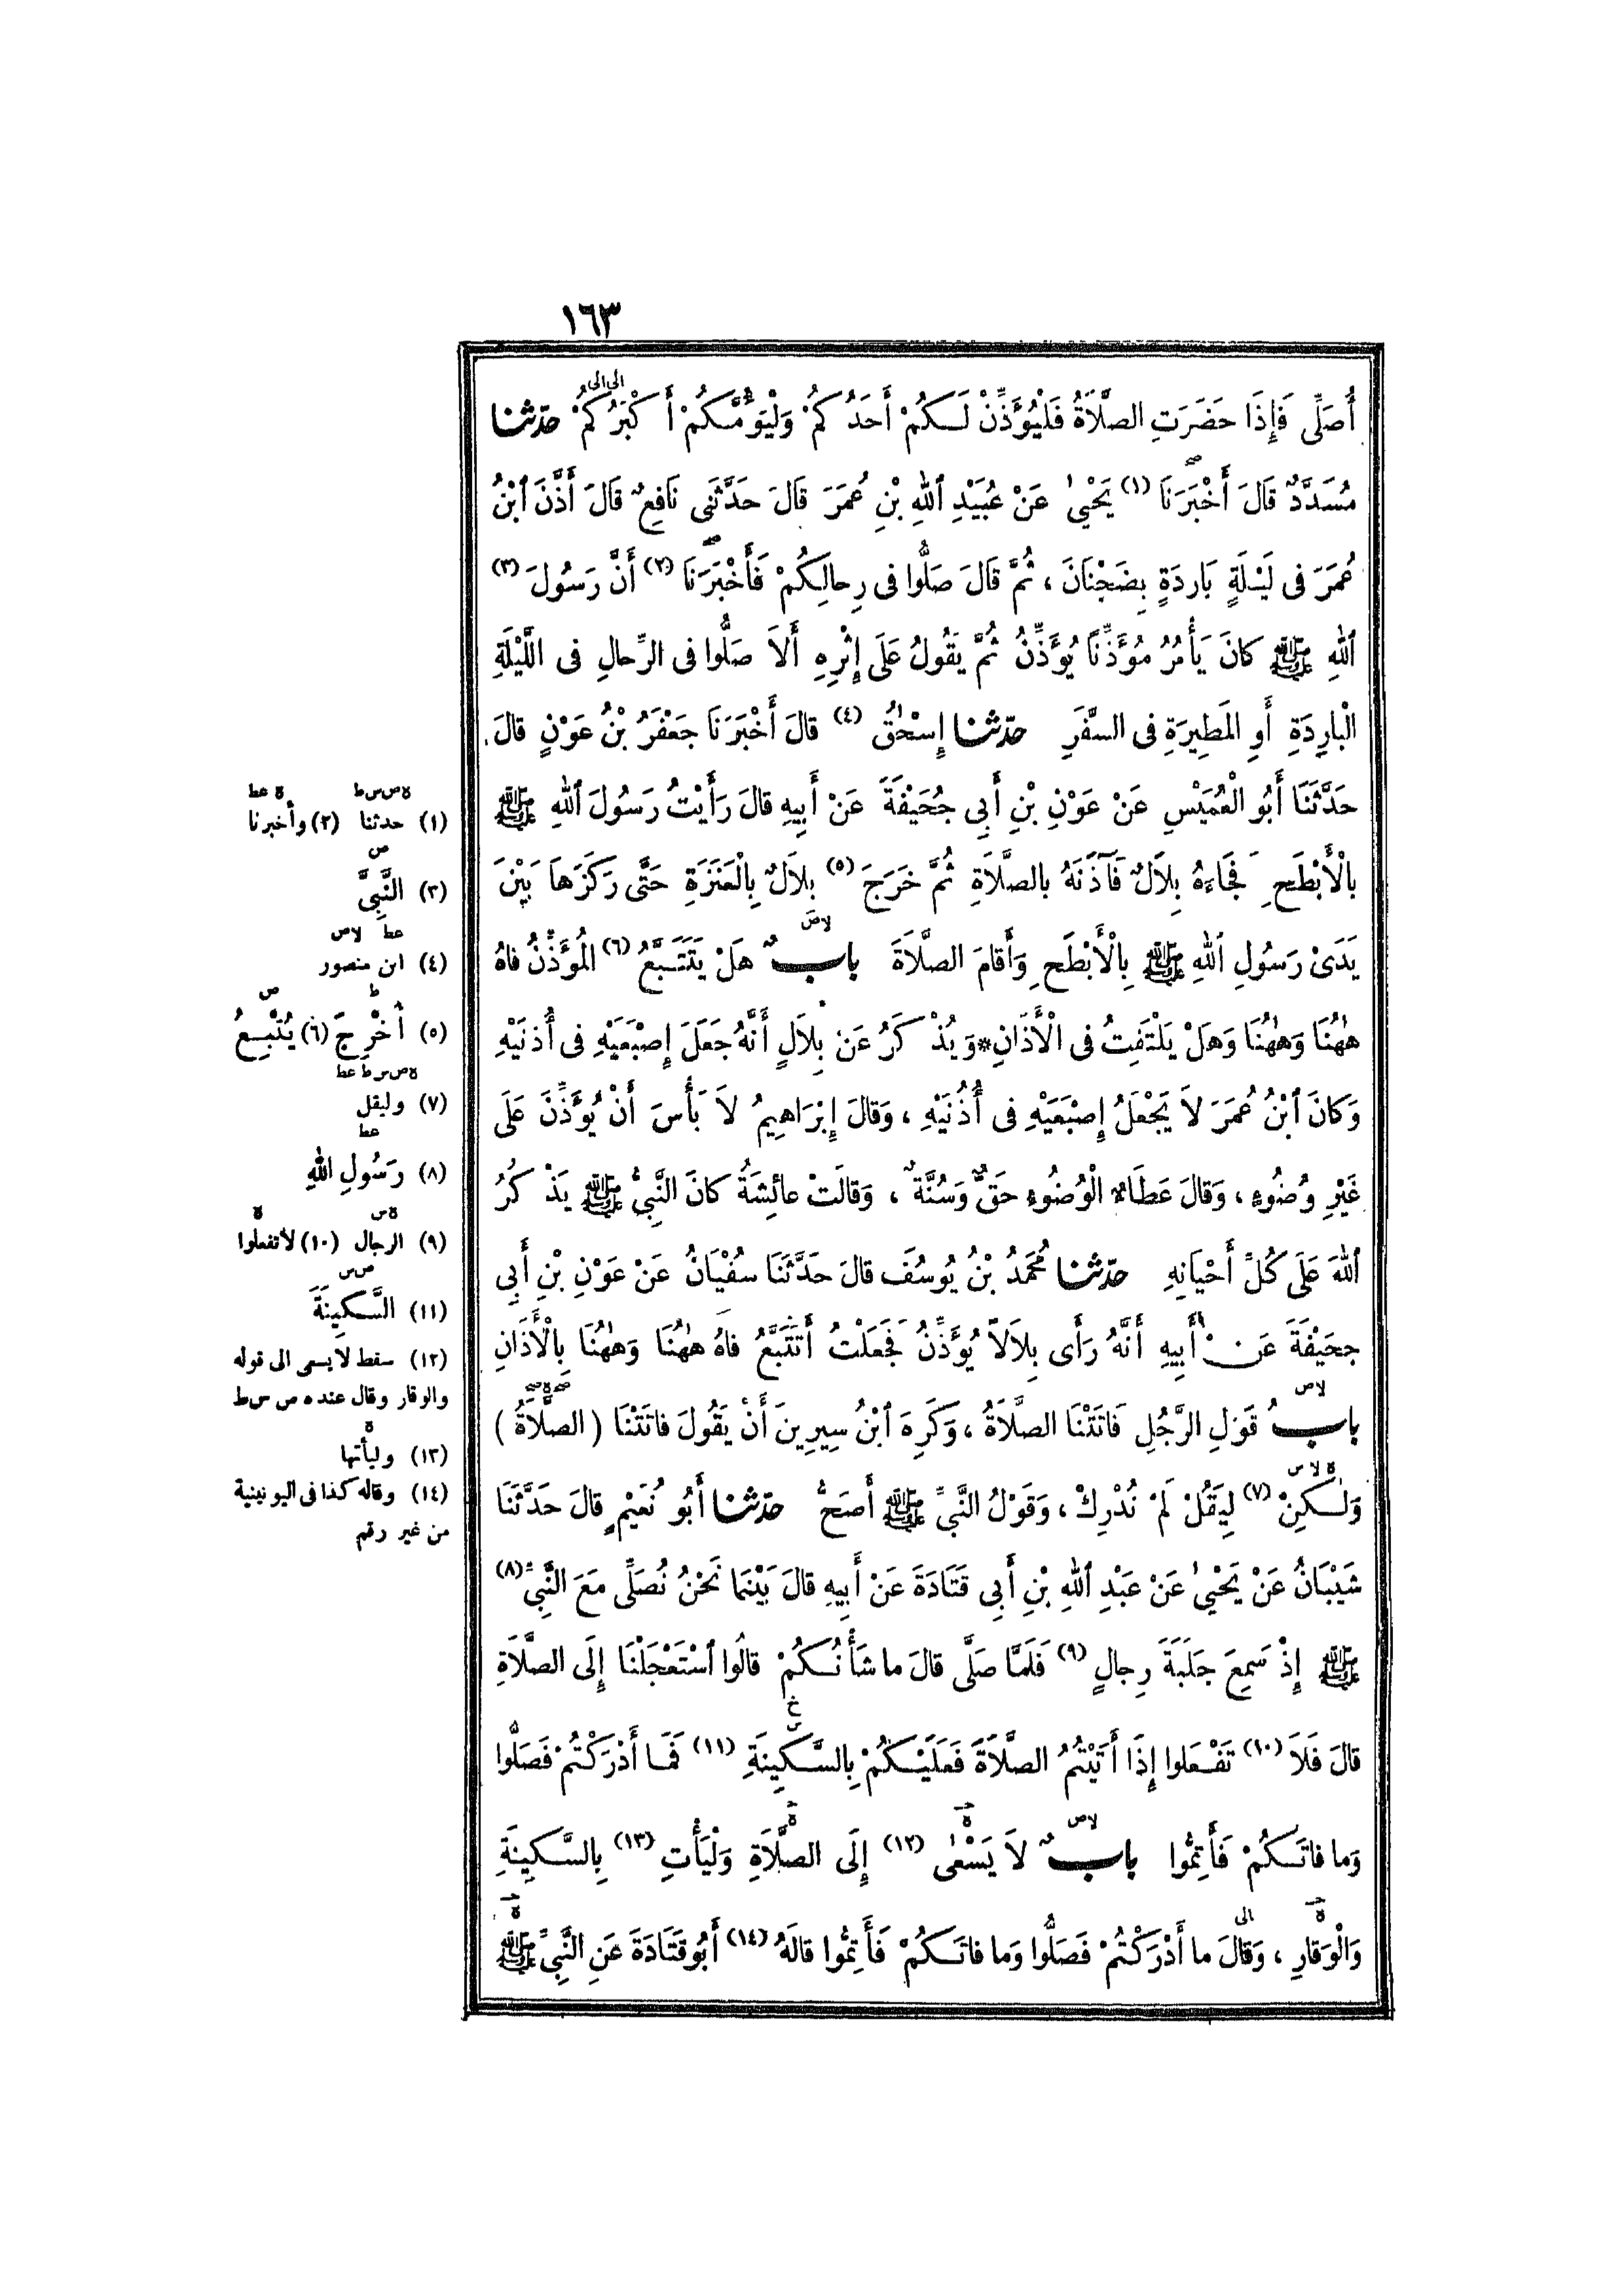 ١٦٣
أُصَلِّى فَإِذَا حَضَرَتِ الصَّلاَةُ فَلْيُؤَذِّنْ لَكُمْ أَحَدُكُمْ وَلْيَؤُمَّكُمْ أَكْبَرُكُمْ حدّثنا
مُسَدَّدٌ قَالَ أَخْبَرَنَا (١) يَحْيىٰ عَنْ عُبَيْدِ ٱللهِ بْنِ عُمَرَ قَالَ حَدَّثَنِى نَافِعٌ قَالَ أَذَّنَ ٱبْنُ
عُمَرَ فى لَيْلَةٍ بَارِدَةٍ بِضَجْنَانَ ، ثُمَّ قَالَ صَلُّوا فى رِحالِكُمْ فَأَخْبَرَنَا (٢) أَنَّ رَسُولَ (٣)
ٱللهِ ﷺ كانَ يَأْمُرُ مُؤَذِّنًا يُؤَذِّنُ ثُمَّ يَقُولُ عَلَى إِثْرِهِ أَلاَ صَلُّوا فى الرِّحالِ فى اللَّيْلَةِ
الْبارِدَةِ أَوِ المَطِيرَةِ فى السَّفَرِ حدّثنا إِسْحٰقُ (٤) قالَ أَخْبَرَنَا جَعْفَرُ بْنُ عَوْنٍ قالَ
حَدَّثَنَا أَبُو الْعُمَيْسِ عَنْ عَوْنِ بْنِ أَبِى جُحَيْفَةَ عَنْ أَبِيهِ قالَ رَأَيْتُ رَسُولَ ٱللهِ ﷺ
بِالْأَبْطَحِ فَجَاءَهُ بِلاَلٌ فَآذَنَهُ بالصَّلاَةِ ثُمَّ خَرَجَ (٥) بِلاَلٌ بِالْعَنَزَةِ حَتَّى رَكَزَهَا بَيْنَ
يَدَىْ رَسُولِ ٱللهِ ﷺ بِالْأَبْطَحِ وَأَقامَ الصَّلاَةَ بابٌ هَلْ يَتَتَبَّعُ (٦) المُؤَذِّنُ فاهُ
هٰهُنَا وَهٰهُنَا وَهَلْ يَلْتَفِتُ فى الْأَذَانِ * وَيُذْكَرُ عَنْ بِلاَلٍ أَنَّهُ جَعَلَ إِصْبَعَيْهِ فى أُذُنَيْهِ
وَكانَ ٱبْنُ عُمَرَ لاَ يَجْعَلُ إِصْبَعَيْهِ فى أُذُنَيْهِ ، وَقالَ إِبْرَاهِيمُ لاَ بَأْسَ أَنْ يُؤَذِّنَ عَلَى
غَيْرِ وُضُوءٍ ، وَقالَ عَطَاءٌ الْوُضُوءُ حَقٌّ وَسُنَّةٌ ، وَقالَتْ عائِشَةُ كانَ النَّبِىُّ ﷺ يَذْكُرُ
ٱللهَ عَلَى كُلِّ أَحْيَانِهِ حدّثنا مُحَمَّدُ بْنُ يُوسُفَ قالَ حَدَّثَنَا سُفْيَانُ عَنْ عَوْنِ بْنِ أَبِى
جحَيْفَةَ عَنْ أَبِيهِ أَنَّهُ رَأَى بِلاَلاً يُؤَذِّنُ فَجَعَلْتُ أَتَتَبَّعُ فاهُ هٰهُنَا وَهٰهُنَا بِالْأَذَانِ
بابُ قَوْلِ الرَّجُلِ فَاتَتْنَا الصَّلاَةُ ، وَكَرِهَ ٱبْنُ سِيرِينَ أَنْ يَقُولَ فاتَتْنَا ( الصَّلاَةُ )
وَلٰكِنْ (٧) لِيَقُلْ لَمْ نُدْرِكْ ، وَقَوْلُ النَّبِىِّ ﷺ أَصَحُّ حدّثنا أَبُو نُعَيْمٍ قالَ حَدَّثَنَا
شَيْبَانُ عَنْ يَحْيىٰ عَنْ عَبْدِ ٱللهِ بْنِ أَبِى قَتَادَةَ عَنْ أَبِيهِ قالَ بَيْنَمَا نَحْنُ نُصَلِّى مَعَ النَّبِىِّ (٨)
ﷺ إِذْ سَمِعَ جَلَبَةَ رِجالٍ (٩) فَلَمَّا صَلَّى قالَ ما شَأْنُكُمْ قالُوا ٱسْتَعْجَلْنَا إِلَى الصَّلاَةِ
قالَ فَلاَ (١٠) تَفْعَلوا إِذَا أَتَيْتُمُ الصَّلاَةَ فَعَلَيْكُمْ بِالسَّكِينَةِ (١١) فَمَا أَدْرَكْتُمْ فَصَلُّوا
وَما فاتَكُمْ فَأَتِمُّوا بابٌ لاَ يَسْعٰى (١٢) إِلَى الصَّلاَةِ وَلْيَأْتِ (١٣) بِالسَّكِينَةِ
وَالْوَقارِ ، وَقالَ ما أَدْرَكْتُمْ فَصَلُّوا وَما فاتَكُمْ فَأَتِمُّوا قالَهُ (١٤) أَبُو قَتَادَةَ عَنِ النَّبِىِّ ﷺ
(١) حدثنا (٢) وأخبرنا
(٣) النَّبِىَّ
(٤) ابن منصور
(٥) أُخْرِجَ (٦) يُتْبِعُ
(٧) وليقل
(٨) رَسُولِ اللهِ
(٩) الرجال (١٠) لاتفعلوا
(١١) السَّكِينَةَ
(١٢) سقط لايسعى الى قوله
والوقار وقال عند ه ص س ط
(١٣) وليأتها
(١٤) وقاله كذا فى اليونينية
من غير رقم